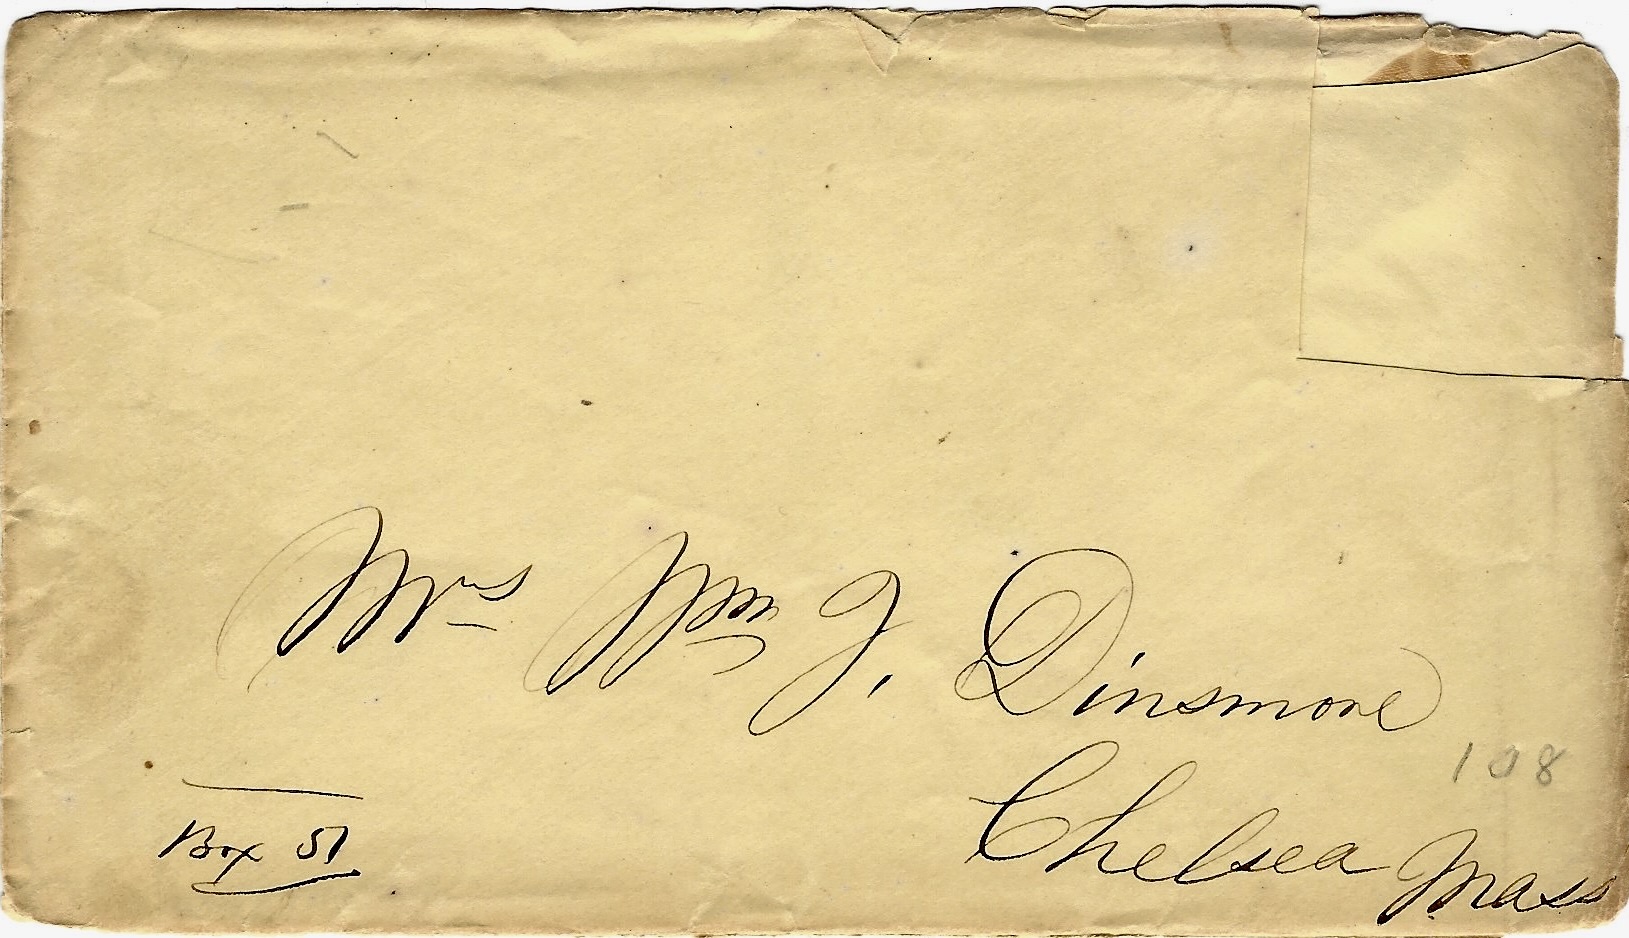 Mrs Wm J. Dinsmore
108
Chelsea Mass
Box 51